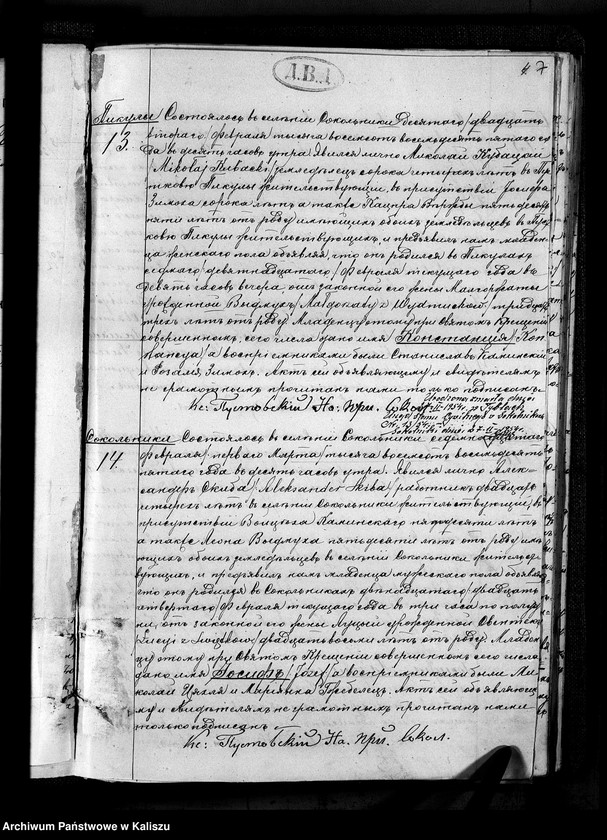 Д.В.А
47
Пикулы Состоялось въ селенiи Сокольники десятаго/двадцать
13.
втораго/Февраля тысяча восемсотъ восемьдесятъ пятаго
да въ десять часовъ утра. Явился лично Николай Кубацкiй
/Mikołaj Kubacki/ земледелецъ сорока четырехъ летъ въ
Пикулы жительствующiй, въ присутствiи Iосифа
Зимоха сорока летъ а также Кацпра Вербы пятьдесят
пяти летъ отъ роду имеющихъ обоихъ земледельцевъ въ
Пикулы жительствующихъ, и предъявилъ намъ младен
ца женскаго пола объявляя, что онъ родился въ Пикулахъ
седмаго/девятнадцатаго/Февраля текущаго года въ
девять часовъ вечера, отъ законной его жены Малгоржаты
урожденной Ведмухъ /Małgorzaty z / тридцати
трехъ летъ отъ роду. Младенцу этому при Святомъ Крещенiи
совершенномъ сего числа дано имя Констанцiя /Kon
stancya/ а воспрiемниками были Станиславъ Каминскiй
и Розалiя Зимохъ. Актъ сей объявляющему и свидетелямъ
не грамотнымъ прочитанъ нами только подписанъ.
Кс: Пустовскiй На. Прц. Сокол.
Сокольники Состоялось въ селенiи Сокольники
14.
Февраля/перваго Марта тысяча восемсотъ восемьдесятъ
пятаго года въ десять часовъ утра. Явился лично Алек=
сандръ Скиба /Aleksander Skiba/ работникъ двадцать
четырехъ летъ въ селенiи Сокольники жительствующiй, въ
присутствiи Войцеха Каминскаго пятьдесяти летъ
а также Леона Ведмуха пятьдесяти летъ отъ роду имею
ющихъ обоихъ земледельцевъ въ селенiи Сокольники жительст
вующихъ, и предъявилъ намъ младенца мужескаго пола объявляя
что онъ родился въ Сокольникахъ двенадцатаго/двадцать
четвертаго/Февраля текущаго года въ три часа по полу
дни, отъ законной его жены Луцiи урожденной Свентекъ
/Łucyi z Świątków/ двадцать восьми летъ отъ роду. Младен
цу этому при Святомъ Крещенiи совершенномъ сего числа
дано имя Iосифъ /Józef/ а воспрiемниками были Ни
колай и Марiянна. Актъ сей объявляюще
му и свидетелямъ не грамотнымъ прочитанъ нами
только подписанъ
Кс: Пустовскiй На. Прц. Сокол.
Archiwum Państwowe w Kaliszu